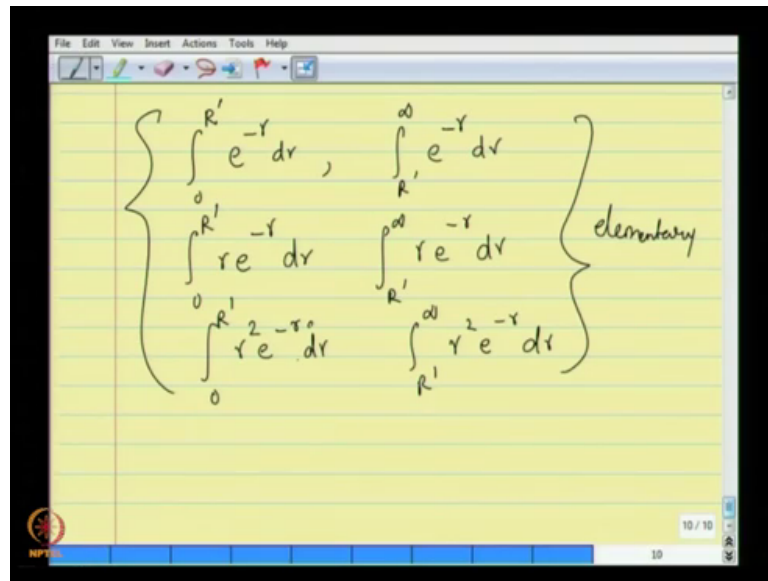 File Edit View Insert Actions Tools Help
∫₀^R' e^-r dr , ∫_R'^∞ e^-r dr
∫₀^R' r e^-r dr ∫_R'^∞ r e^-r dr
elementary
∫₀^R' r² e^-r dr ∫_R'^∞ r² e^-r dr
10 / 10
NPTEL
10